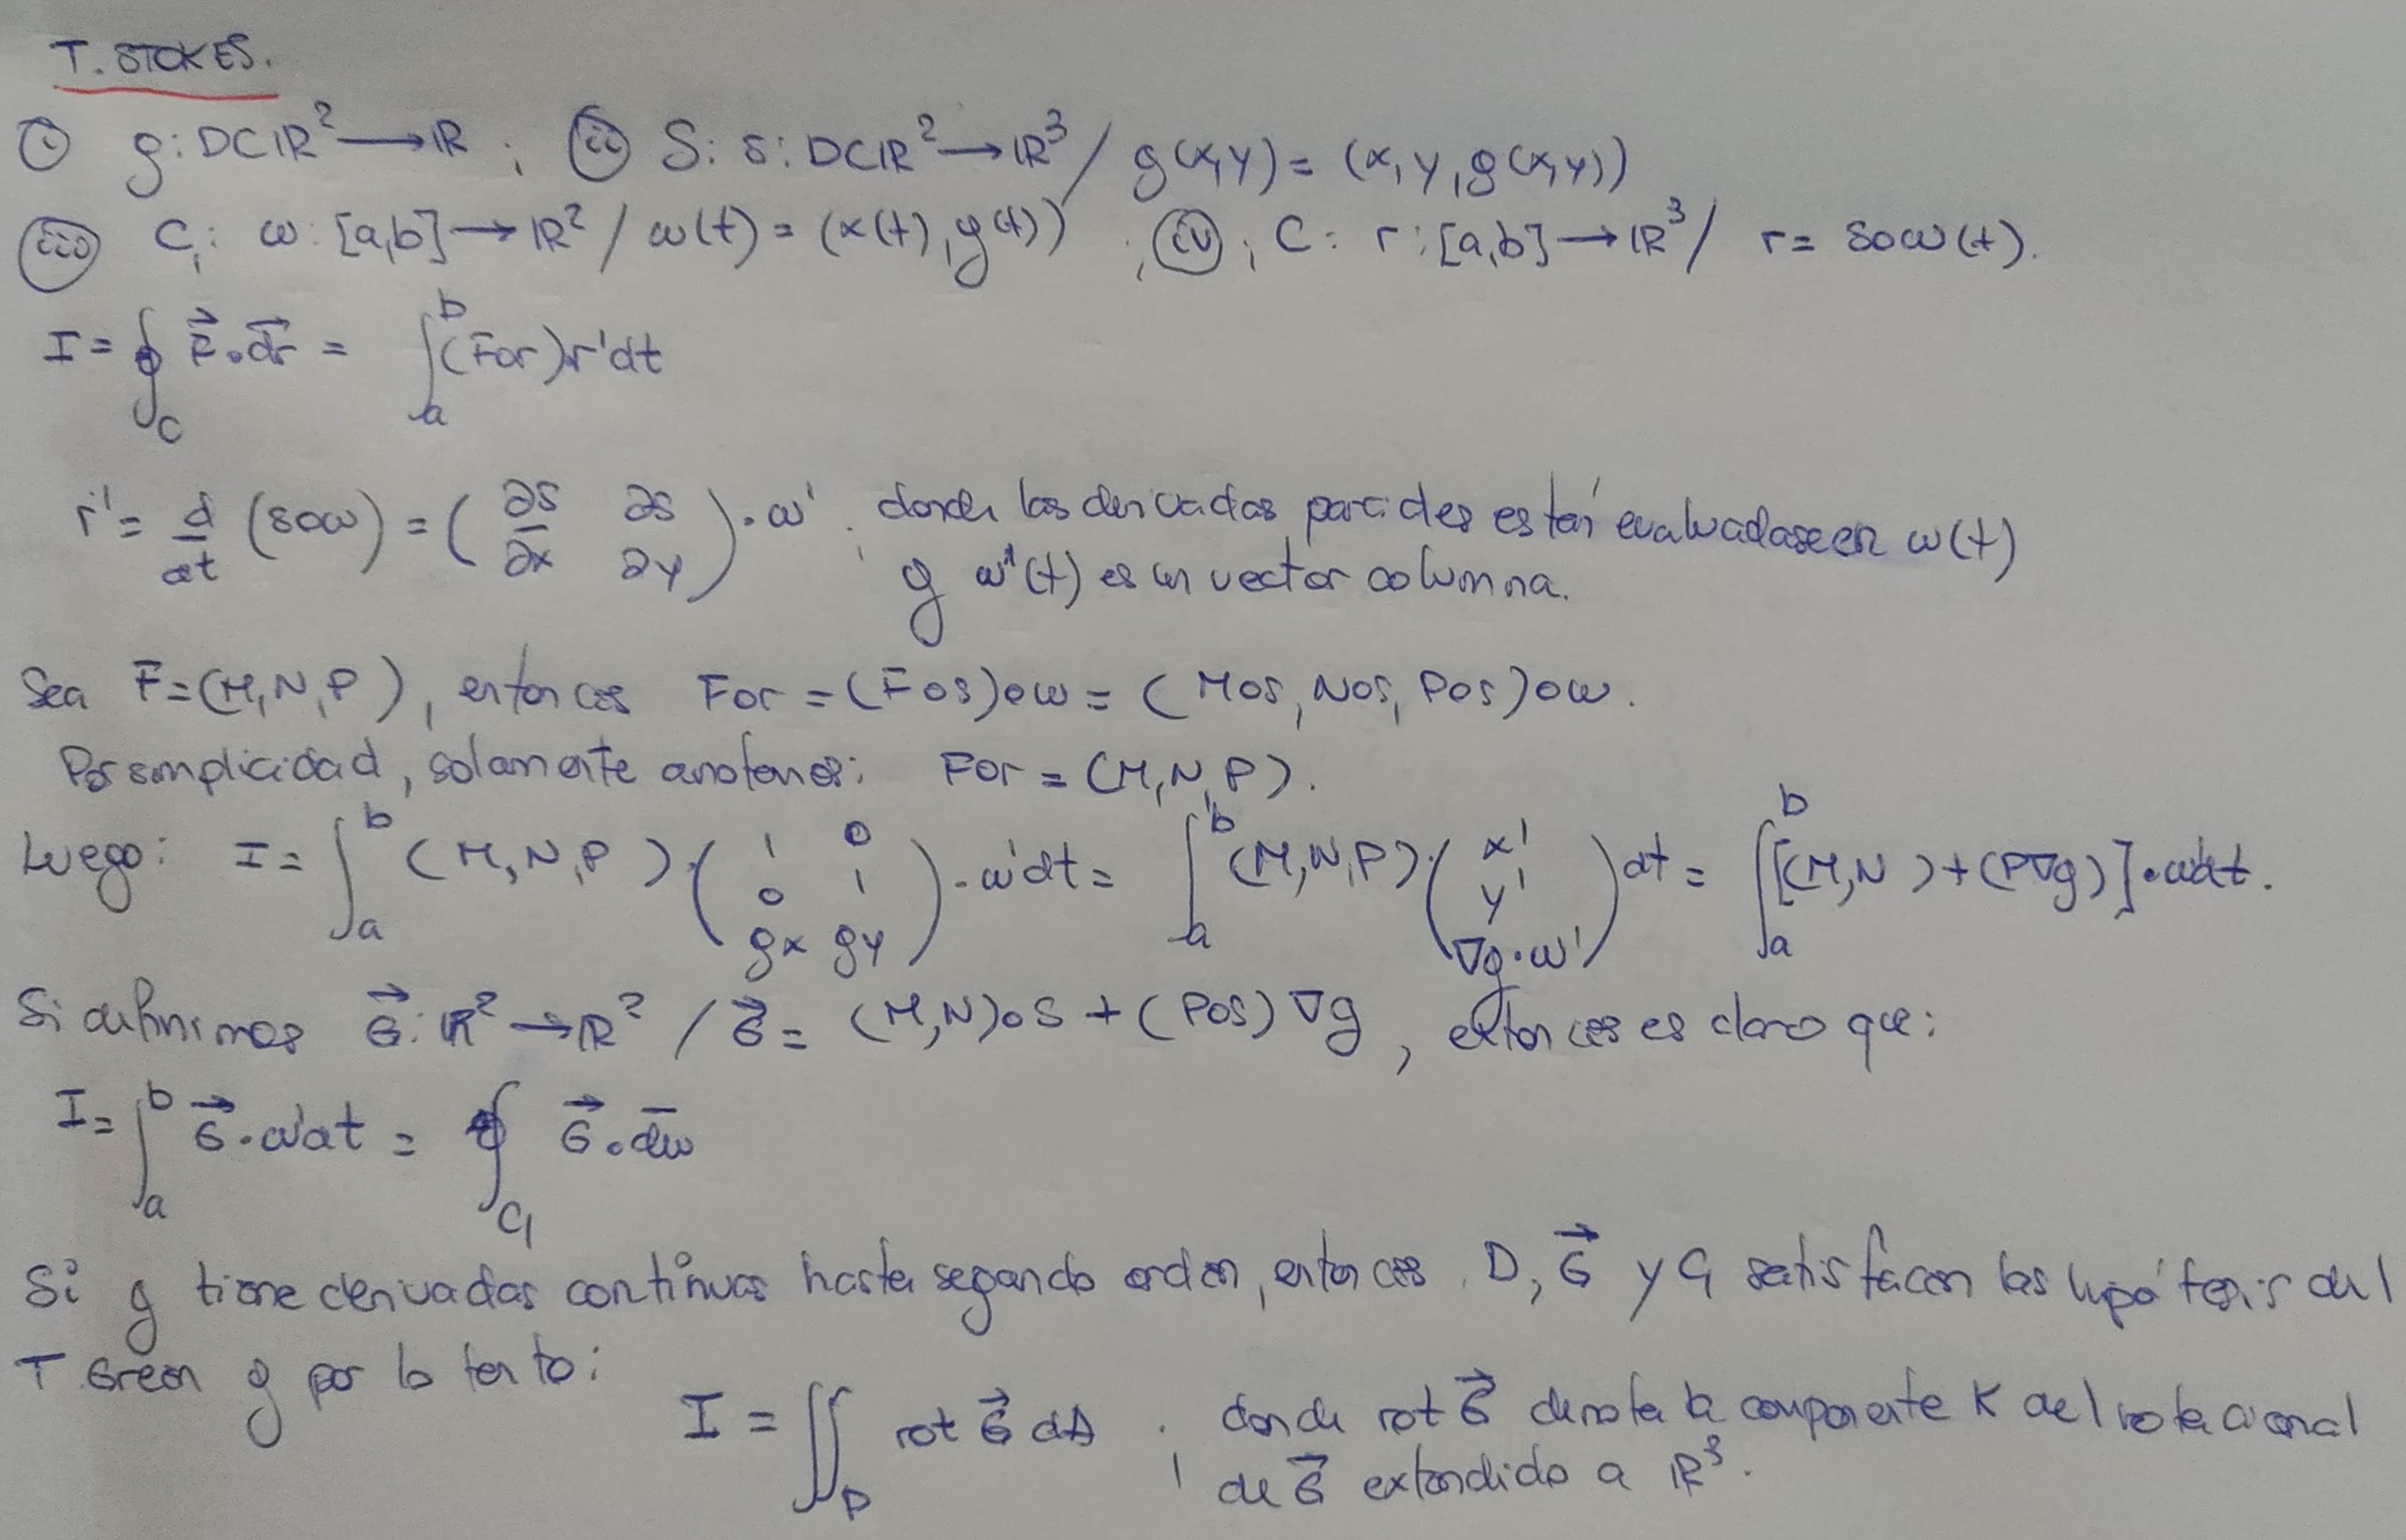 T. STOKES.
(i) g: D⊂ℝ² → ℝ ; (ii) S: s: D⊂ℝ² → ℝ³ / g(x,y) = (x, y, g(x,y))
(iii) C₁: ω: [a,b] → ℝ² / ω(t) = (x(t), y(t)) ; (iv) ; C: r: [a,b] → ℝ³ / r = s∘ω(t).
I = ∮_C F⃗·dr⃗ = ∫_a^b (F∘r) r' dt
r' = d/dt (s∘ω) = ( ∂s/∂x ∂s/∂y )·ω' ; donde las derivadas parciales están evaluadas en ω(t)
y ω'(t) es un vector columna.
Sea F̄ = (M, N, P), entonces F∘r = (F∘s)∘ω = (M∘s, N∘s, P∘s)∘ω.
Por simplicidad, solamente anotemos: F∘r = (M, N, P).
Luego: I = ∫_a^b (M, N, P)·( 1 0 ; 0 1 ; gx gy )·ω' dt = ∫_a^b (M, N, P)·( x' ; y' ; ∇g·ω' ) dt = ∫_a^b [(M, N) + (P∇g)]·ω' dt.
Si definimos G⃗: ℝ² → ℝ² / G⃗ = (M, N)∘s + (P∘s) ∇g, entonces es claro que:
I = ∫_a^b G⃗·ω' dt = ∮_C₁ G⃗·dω̄
Si g tiene derivadas continuas hasta segundo orden, entonces D, G⃗ y C₁ satisfacen las hipótesis del
T Green y por lo tanto:
I = ∬_D rot G⃗ dA ; donde rot G⃗ denota la componente K del rotacional
de G⃗ extendido a ℝ³.